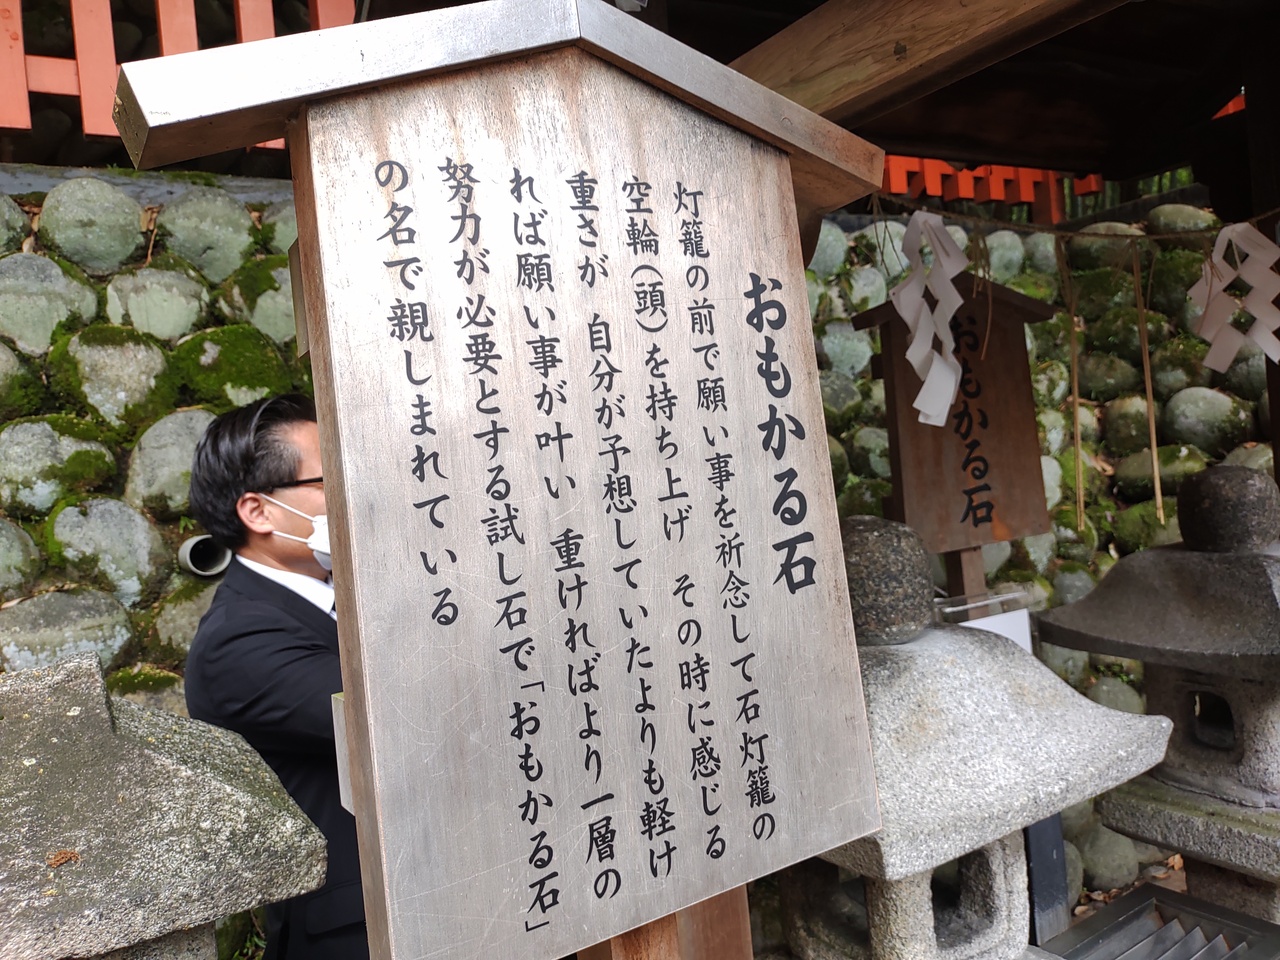 おもかる石
灯籠の前で願い事を祈念して石灯籠の
空輪(頭)を持ち上げ その時に感じる
重さが 自分が予想していたよりも軽け
れば願い事が叶い 重ければより一層の
努力が必要とする試し石で「おもかる石」
の名で親しまれている
おもかる石